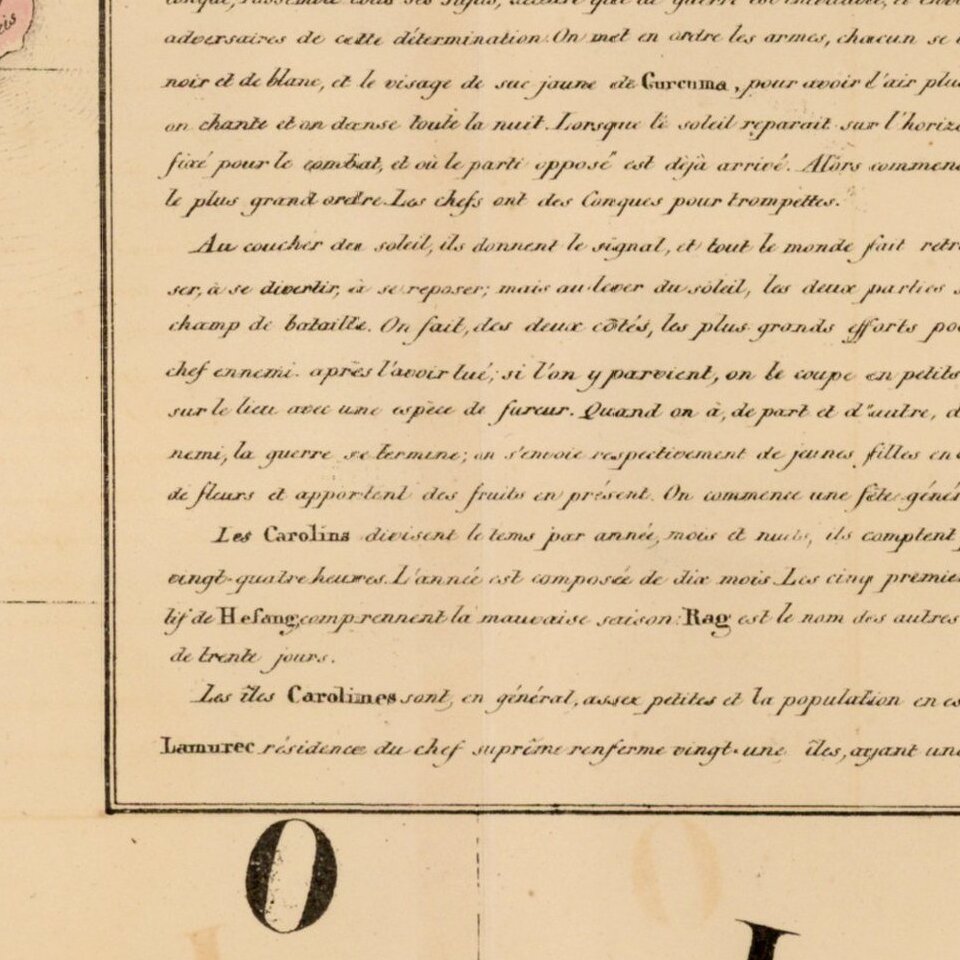 adversaires de cette détermination. On met en ordre les armes, chacun se
noir et de blanc, et le visage de suc jaune de Curcuma, pour avoir l'air plus
on chante et on danse toute la nuit. Lorsque le soleil reparait sur l'horiz
fixé pour le combat, et où le parti opposé est déjà arrivé. Alors commen
le plus grand ordre. Les chefs ont des Conques pour trompettes.
Au coucher du soleil, ils donnent le signal, et tout le monde fait retr
ser, à se divertir, à se reposer; mais au lever du soleil, les deux parties
champ de bataille. On fait, des deux côtés, les plus grands efforts po
chef ennemi après l'avoir tué; si l'on y parvient, on le coupe en petits
sur le lieu avec une espèce de fureur. Quand on à, de part et d'autre,
nemi, la guerre se termine; on s'envoie respectivement de jeunes filles en
de fleurs et apportent des fruits en présent. On commence une fête génér
Les Carolins divisent le tems par année, mois et nuits, ils comptent
vingt-quatre heures. L'année est composée de dix mois. Les cinq premie
tif de Hefang, comprennent la mauvaise saison: Rag est le nom des autres
de trente jours.
Les îles Carolines sont, en général, assez petites et la population en es
Lamurec résidence du chef suprême renferme vingt-une îles, ayant une
O
I